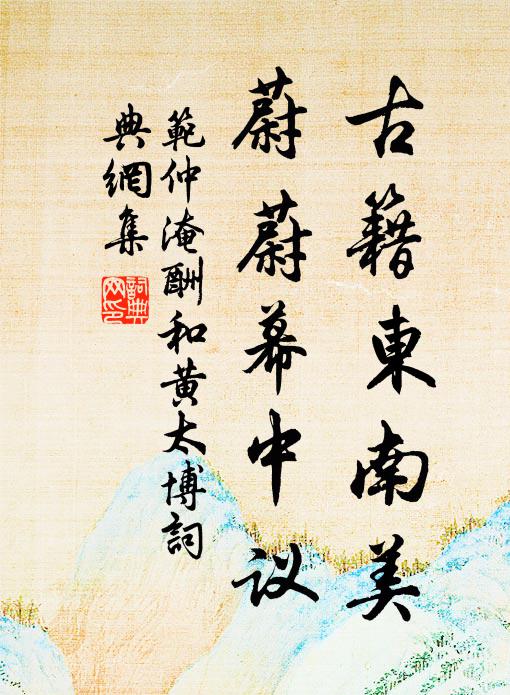 古籍東南美
蔚蔚幕中议
範仲淹酬和黄太博詞
典網集
詞典网印